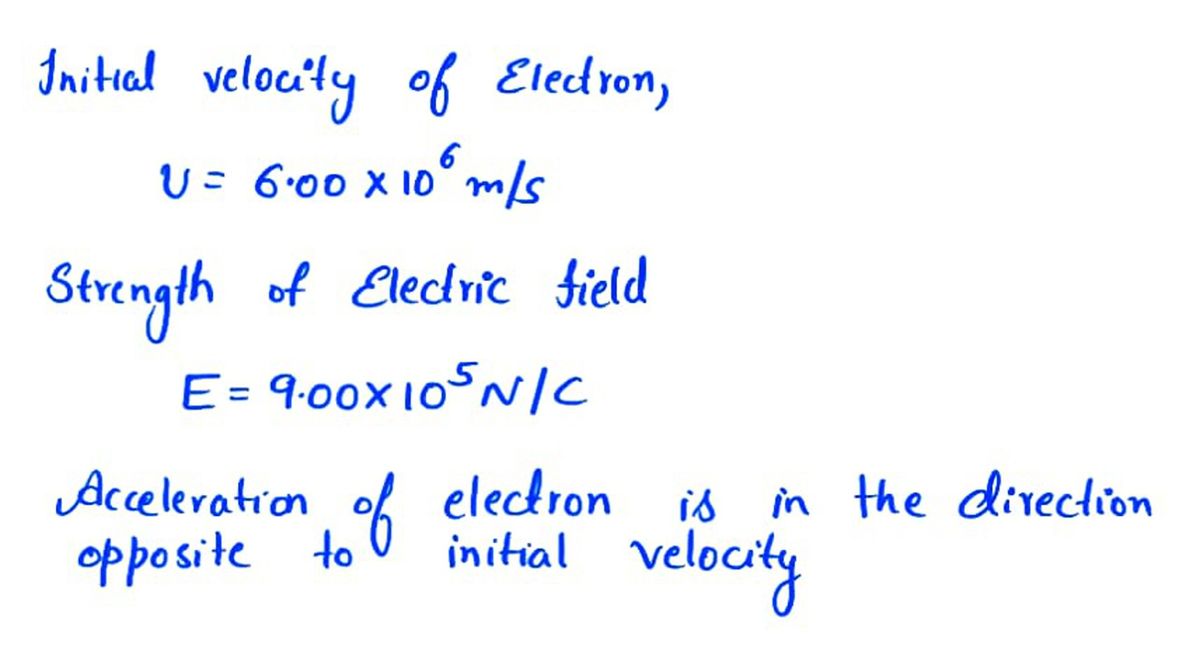 Initial velocity of Electron,
U = 6.00 x 10⁶ m/s
Strength of Electric field
E = 9.00x10⁵ N/C
Acceleration of electron is in the direction
opposite to initial velocity